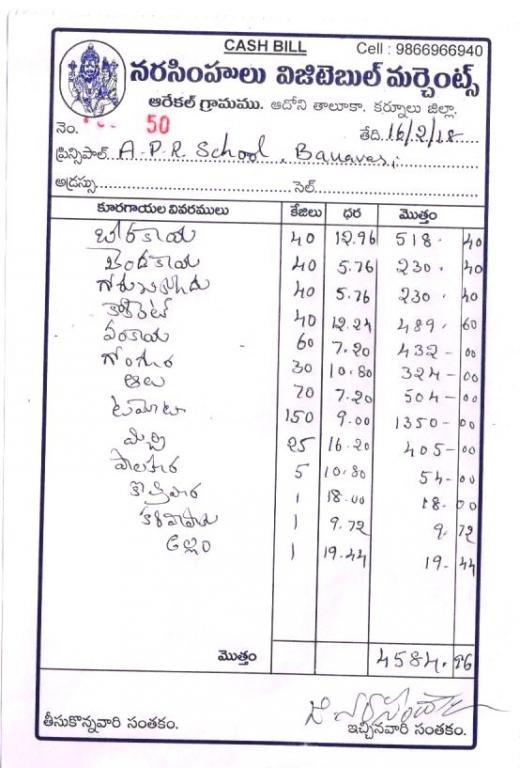 CASH BILL
Cell : 9866966940
నరసింహులు విజిటెబుల్ మర్చెంట్స్
ఆరేకల్ గ్రామము. ఆదోని తాలూకా. కర్నూలు జిల్లా.
నెం. 50 తేది. 16/2/18
ప్రిన్సిపాల్. A.P.R. School, Banavasi
అడ్రస్సు సెల్
కూరగాయల వివరములు కేజీలు ధర మొత్తం
బీరకాయ 40 12.96 518. 40
బెండకాయ 40 5.76 230. 40
గోరుచిక్కుడు 40 5.76 230. 40
క్యారెట్ 40 12.24 489. 60
వంకాయ 60 7.20 432- 00
గోంగూర 30 10.80 324- 00
ఆలు 70 7.20 504- 00
టమోటా 150 9.00 1350- 00
మిర్చి 25 16.20 405- 00
పాలకూర 5 10.80 54- 00
కొత్తిమీర 1 18.00 18. 00
కరివేపాకు 1 9.72 9. 72
అల్లం 1 19.44 19- 44
మొత్తం 4584. 96
తీసుకొన్నవారి సంతకం. ఇచ్చినవారి సంతకం.